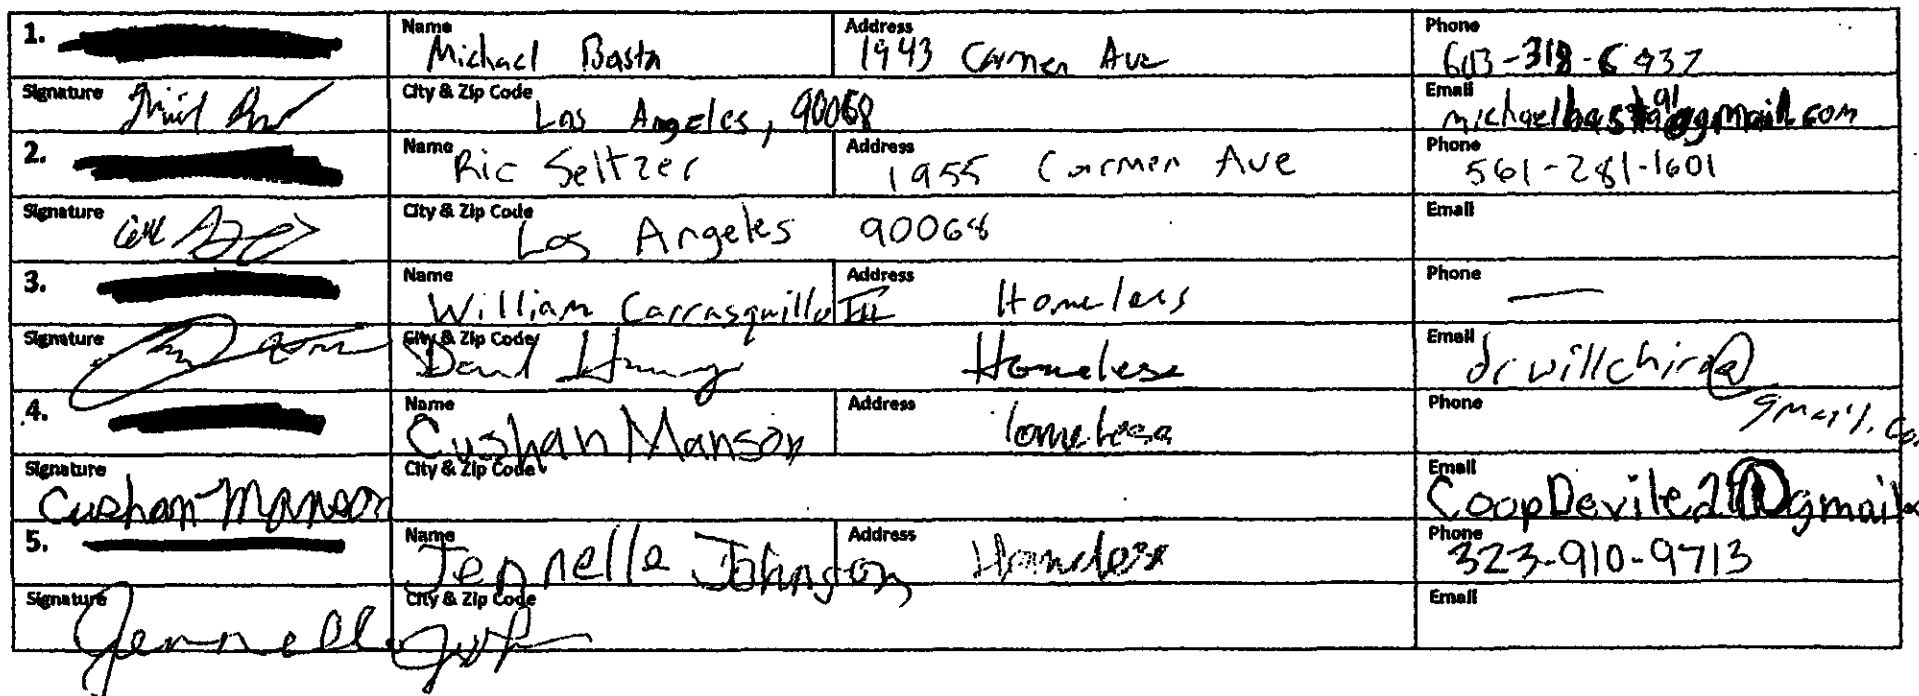 1. Name Michael Basta Address 1943 Carmen Ave Phone 603-318-6937
Signature City & Zip Code Los Angeles, 90068 Email michaelbasta91@gmail.com
2. Name Ric Seltzer Address 1955 Carmen Ave Phone 561-281-1601
Signature City & Zip Code Los Angeles 90068 Email
3. Name William Carrasquillo III Address Homeless Phone —
Signature City & Zip Code Homeless Email drwillchiro@gmail.co
4. Name Cushan Manson Address Phone
Signature Cushan Manson City & Zip Code Email CoopDevile21@gmail
5. Name Jennelle Johnson Address Homeless Phone 323-910-9713
Signature Jennelle City & Zip Code Email